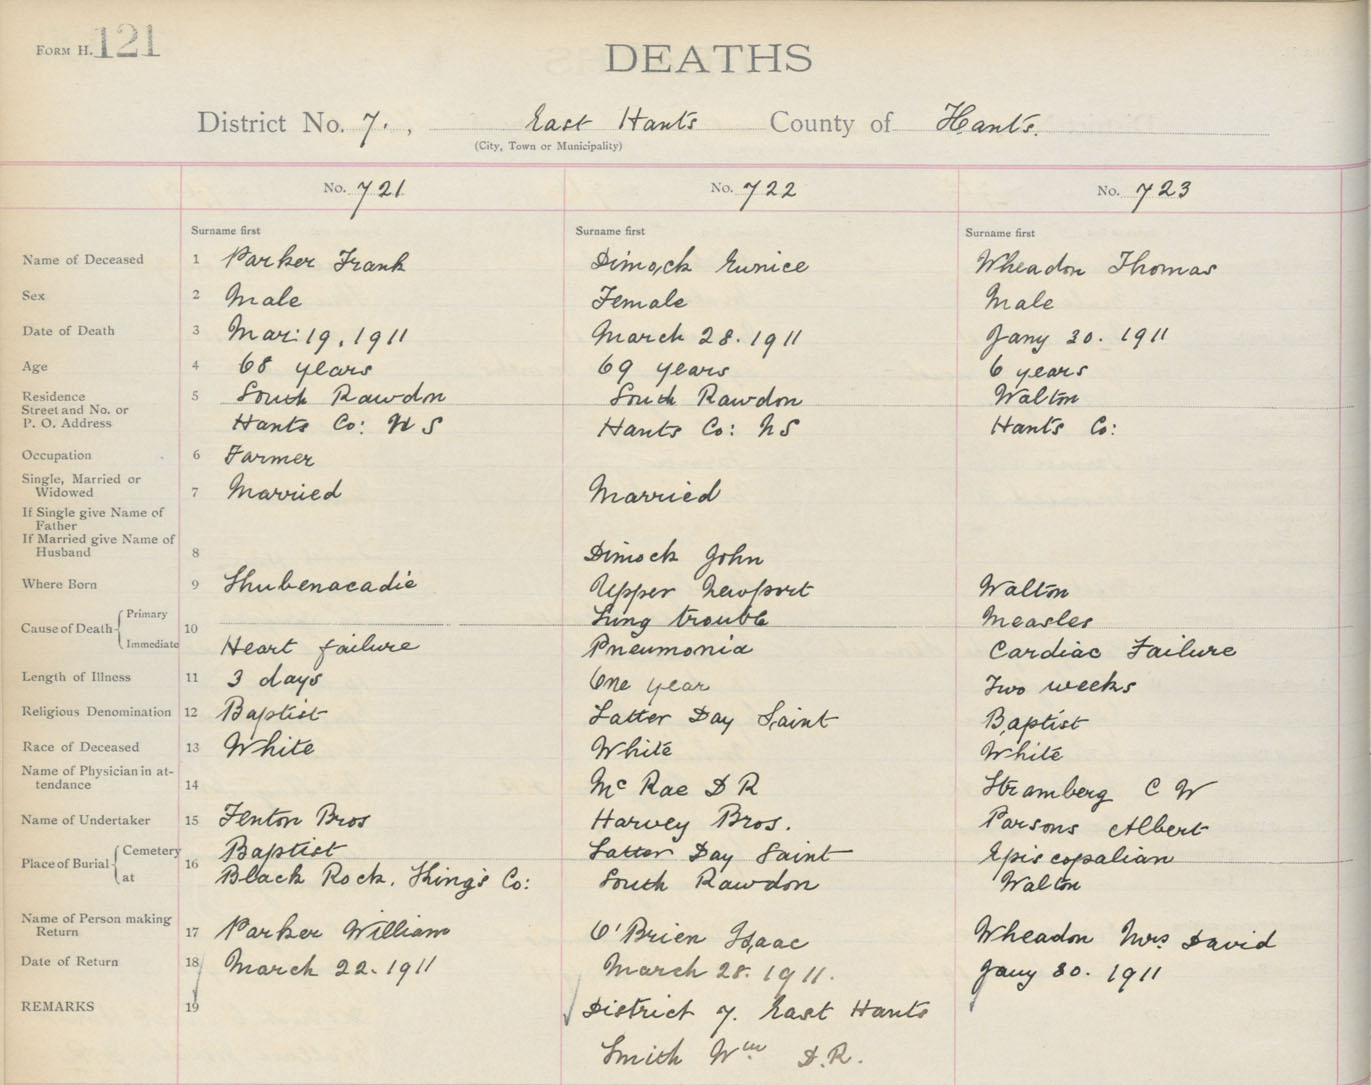 FORM H. 121
DEATHS
District No. 7. , East Hants County of Hants.
(City, Town or Municipality)
No. 721 No. 722 No. 723
Surname first Surname first Surname first
Name of Deceased 1 Parker Frank Dimock Eunice Wheadon Thomas
Sex 2 Male Female Male
Date of Death 3 Mar: 19, 1911 March 28. 1911 Jany 30. 1911
Age 4 68 years 69 years 6 years
Residence 5 South Rawdon South Rawdon Walton
Street and No. or
P. O. Address Hants Co: N S Hants Co: N S Hants Co:
Occupation 6 Farmer
Single, Married or
Widowed 7 Married Married
If Single give Name of
Father
If Married give Name of
Husband 8 Dimock John
Where Born 9 Shubenacadie Upper Newport Walton
Cause of Death 10 Primary Lung trouble Measles
Immediate Heart failure Pneumonia Cardiac Failure
Length of Illness 11 3 days One year Two weeks
Religious Denomination 12 Baptist Latter Day Saint Baptist
Race of Deceased 13 White White White
Name of Physician in at-
tendance 14 Mc Rae D R Stramberg C W
Name of Undertaker 15 Fenton Bros Harvey Bros. Parsons Albert
Place of Burial 16 Cemetery Baptist Latter Day Saint Episcopalian
at Black Rock. King's Co: South Rawdon Walton
Name of Person making
Return 17 Parker William O'Brien Isaac Wheadon Mrs David
Date of Return 18 March 22. 1911 March 28. 1911. Jany 30. 1911
REMARKS 19 District 7. East Hants
Smith Wm D.R.